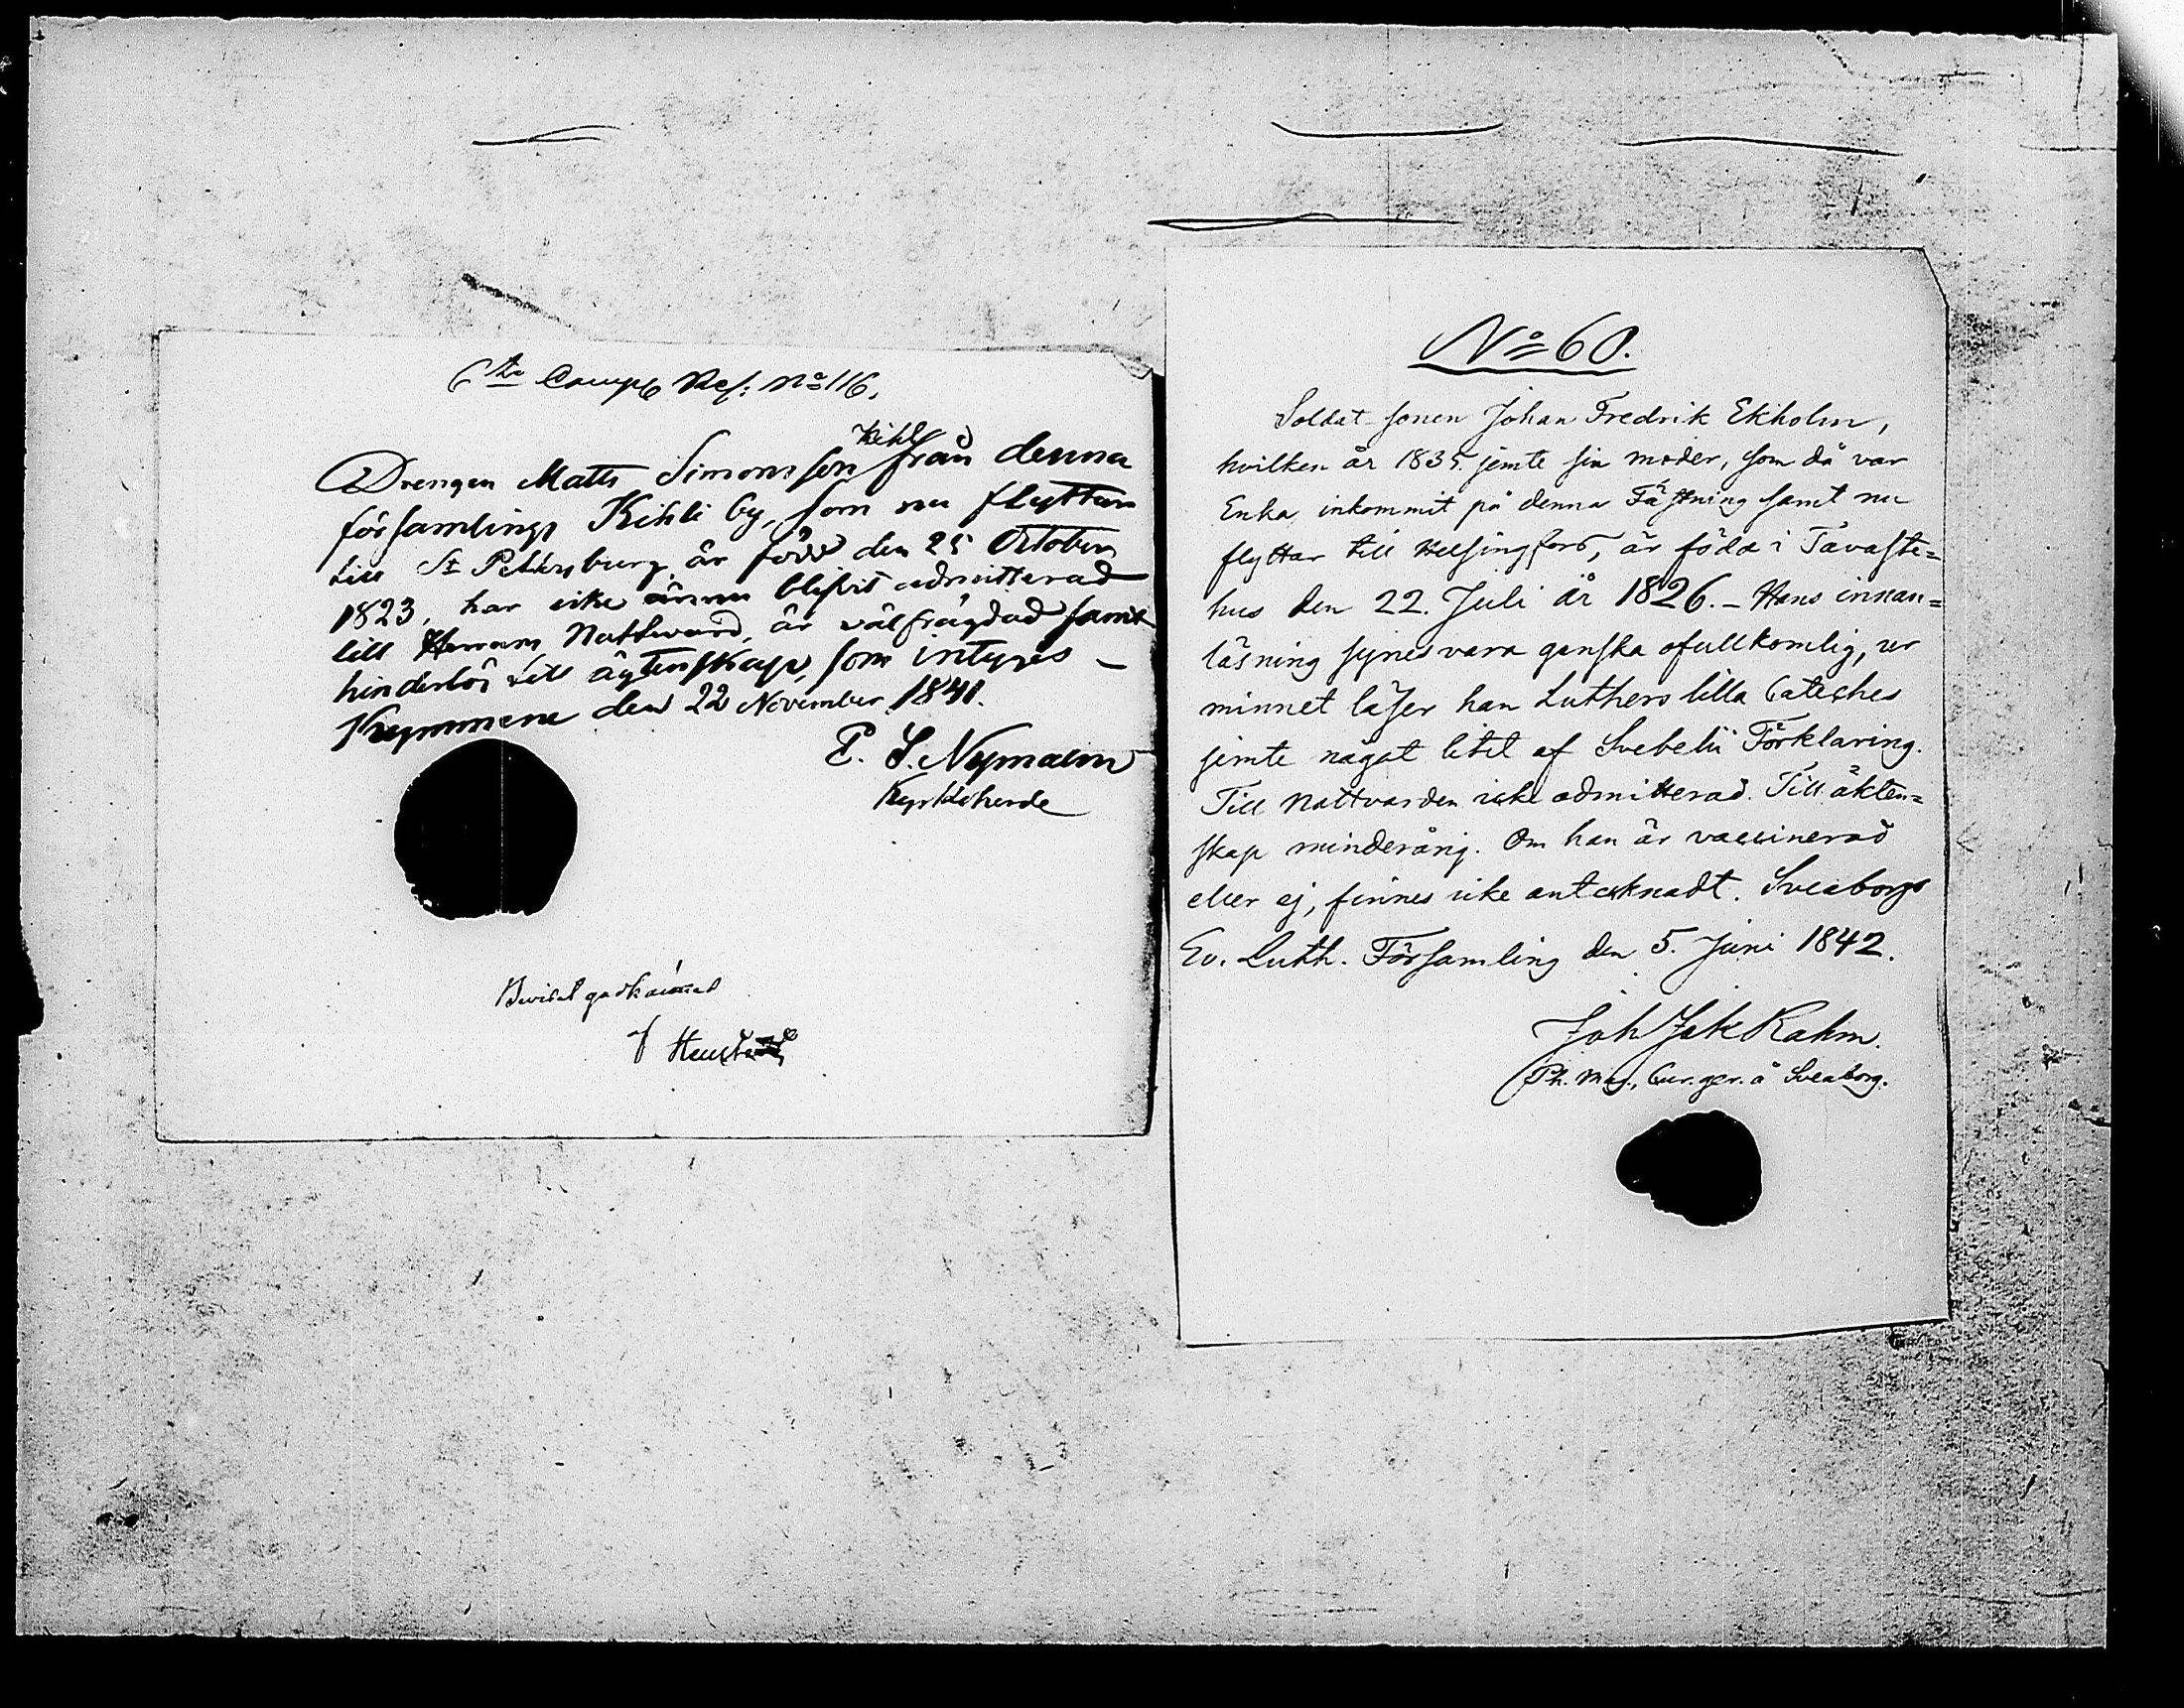 6te Comp Ref: No 116.
Kihl
Drengen Matts Simonsson från denna
församlings Kihli by, som nu flyttar
till St Petersburg är född den 25 October
1823, har icke ännu blifvit admitterad
till Herrans Nattward, är välfrägdad samt
hinderlös till ägtenskap, som intygas –
Kymmene den 22 November 1841.
P. S. Nyman
Kyrkoherde
Beviset godkännes
No 60.
Soldat-sonen Johan Fredrik Ekholm,
hvilken år 1835. jemte sin moder, som då var
Enka, inkommit på denna Fästning samt nu
flyttar till Helsingfors, är född i Tavaste=
hus den 22. Juli år 1826. – Hans innan=
läsning synes vara ganska ofullkomlig, ur
minnet läser han Luthers lilla Cateches
jemte något litet af Svebelii Förklaring.
Till Nattvarden icke admitterad. Till äkten=
skap minderårig. Om han är vaccinerad
eller ej, finnes icke antecknadt. Sveaborgs
Ev. Luth. Församling den 5. Juni 1842.
Joh Jak Rahm.
Ph. Mag., Cur. ger. å Sveaborg.